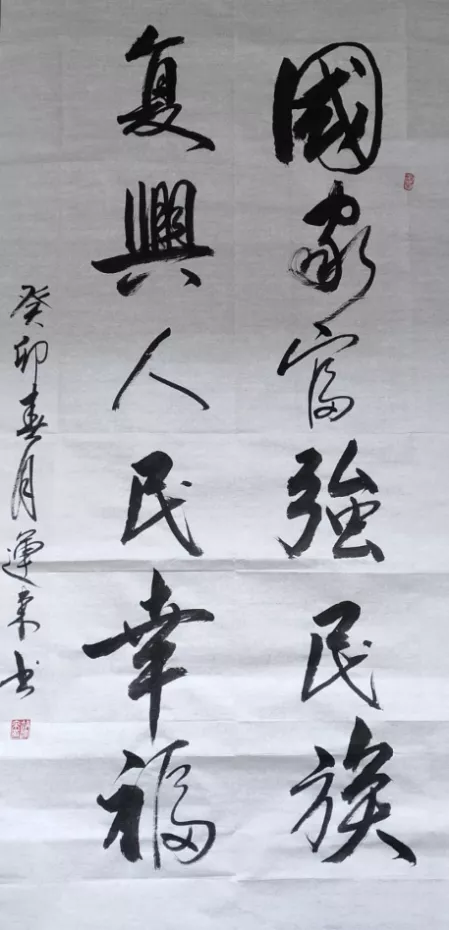 國家富強民族
复興人民幸福
癸卯春月運来书